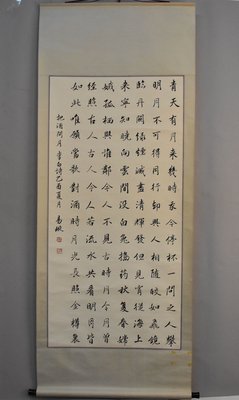 青天有月來幾時我今停杯一問之人攀
明月不可得月行卻與人相隨皎如飛鏡
臨丹闕綠煙滅盡清輝發但見宵從海上
來寧知曉向雲間沒白兔搗藥秋復春嫦
娥孤棲與誰鄰今人不見古時月今月曾
經照古人古人今人若流水共看明月皆
如此唯願當歌對酒時月光長照金樽裏
把酒問月 李白詩 酉夏月